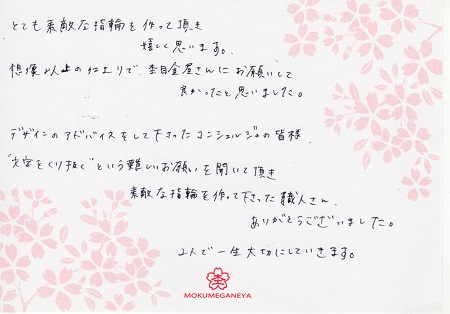 とても素敵な指輪を作って頂き
嬉しく思います。
想像以上の仕上りで、杢目金屋さんにお願いして
良かったと思いました。
デザインのアドバイスをして下さったコンシェルジュの皆様、
"文字をくり抜く"という難しいお願いを聞いて頂き
素敵な指輪を作って下さった職人さん、
ありがとうございました。
2人で一生大切にしていきます。
MOKUMEGANEYA